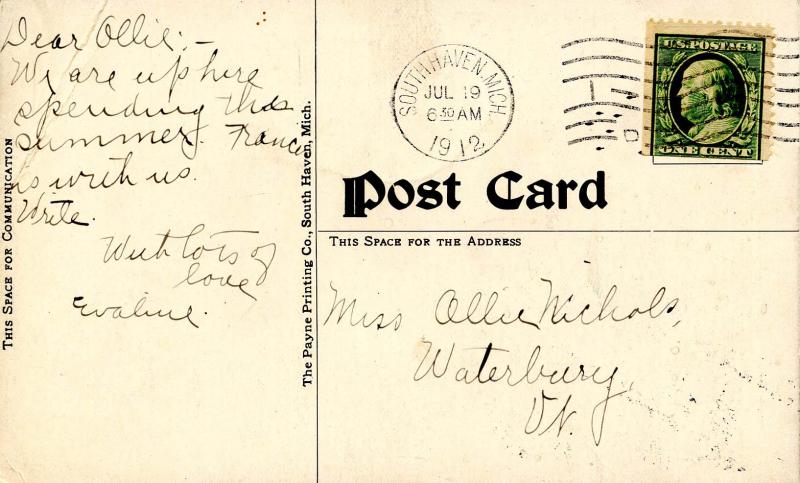 Dear Ollie:-
We are up here
spending this
summer. Frances
is with us.
Write.
With lots of
love
Evaline.
THIS SPACE FOR COMMUNICATION
The Payne Printing Co., South Haven, Mich.
SOUTH HAVEN, MICH.
JUL 19
6 30 AM
1912
U.S. POSTAGE
ONE CENT
Post Card
THIS SPACE FOR THE ADDRESS
Miss Ollie Nichols,
Waterbury,
Vt.